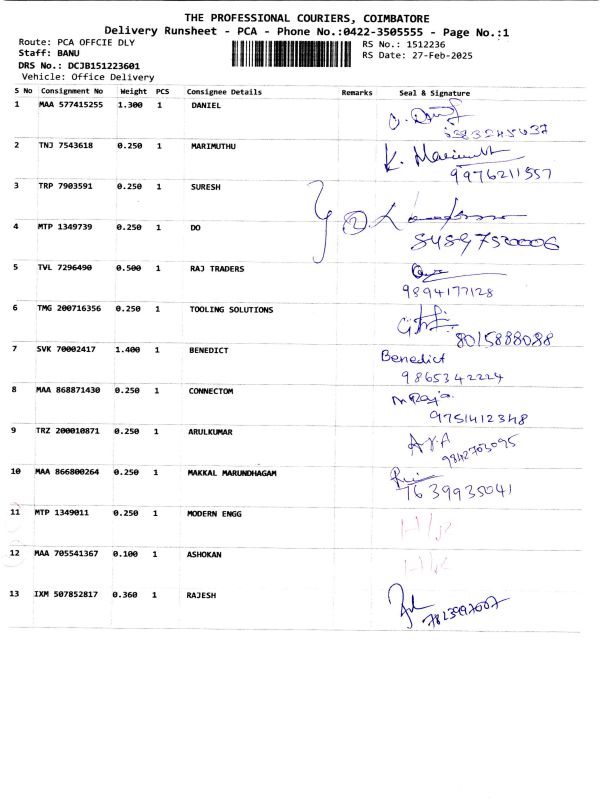 THE PROFESSIONAL COURIERS, COIMBATORE
Delivery Runsheet - PCA - Phone No.:0422-3505555 - Page No.:1
Route: PCA OFFCIE DLY
RS No.: 1512236
Staff: BANU
RS Date: 27-Feb-2025
DRS No.: DCJB151223601
Vehicle: Office Delivery
S No Consignment No Weight PCS Consignee Details Remarks Seal & Signature
1 MAA 577415255 1.300 1 DANIEL
2 TNJ 7543618 0.250 1 MARIMUTHU
K. Marimuthu
9976211557
3 TRP 7903591 0.250 1 SURESH
4 MTP 1349739 0.250 1 DO
2
8489750006
5 TVL 7296490 0.500 1 RAJ TRADERS
9894177128
6 TMG 200716356 0.250 1 TOOLING SOLUTIONS
8015888088
7 SVK 70002417 1.400 1 BENEDICT
Benedict
9865342224
8 MAA 868871430 0.250 1 CONNECTOM
M Raja
9751412348
9 TRZ 200010871 0.250 1 ARULKUMAR
9842703095
10 MAA 866800264 0.250 1 MAKKAL MARUNDHAGAM
7639935041
11 MTP 1349011 0.250 1 MODERN ENGG
12 MAA 705541367 0.100 1 ASHOKAN
13 IXM 507852817 0.360 1 RAJESH